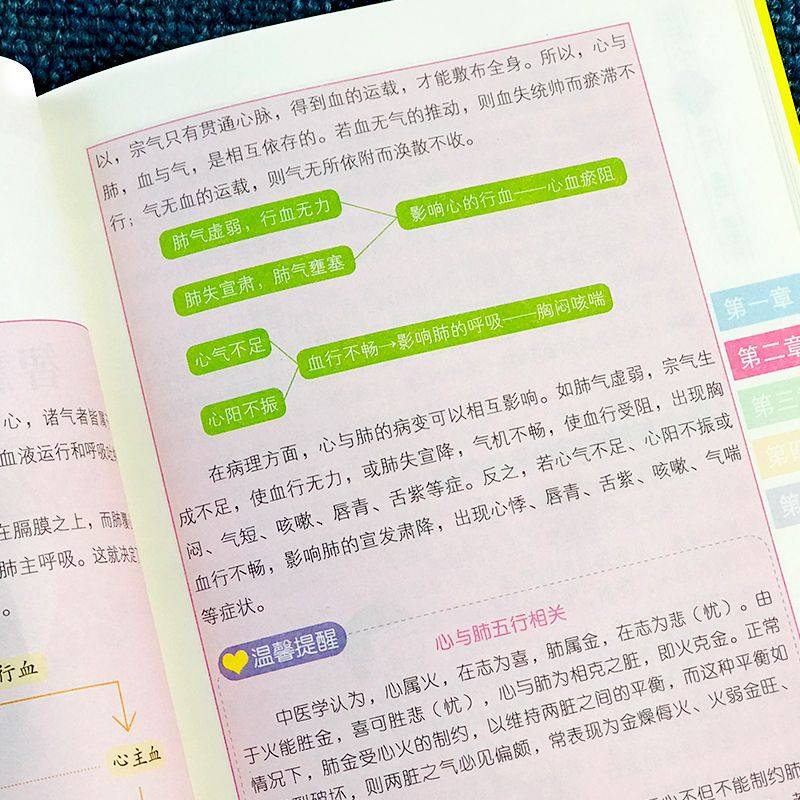 以，宗气只有贯通心脉，得到血的运载，才能敷布全身。所以，心与
肺，血与气，是相互依存的。若血无气的推动，则血失统帅而瘀滞不
行；气无血的运载，则气无所依附而涣散不收。
肺气虚弱，行血无力
影响心的行血——心血瘀阻
肺失宣肃，肺气壅塞
心气不足
血行不畅→影响肺的呼吸——胸闷咳喘
心阳不振
在病理方面，心与肺的病变可以相互影响。如肺气虚弱，宗气生
成不足，使血行无力，或肺失宣降，气机不畅，使血行受阻，出现胸
闷、气短、咳嗽、唇青、舌紫等症。反之，若心气不足、心阳不振或
血行不畅，影响肺的宣发肃降，出现心悸、唇青、舌紫、咳嗽、气喘
等症状。
温馨提醒
心与肺五行相关
中医学认为，心属火，在志为喜，肺属金，在志为悲（忧）。由
于火能胜金，喜可胜悲（忧），心与肺为相克之脏，即火克金。正常
情况下，肺金受心火的制约，以维持两脏之间的平衡，而这种平衡如
到破坏，则两脏之气必见偏颇，常表现为金燥侮火、火弱金旺、
心不但不能制约肺
第一章
第二章
第三
第四
第
心，诸气者皆属
血液运行和呼吸
在膈膜之上，而肺
肺主呼吸。这就决定
。
行血
心主血